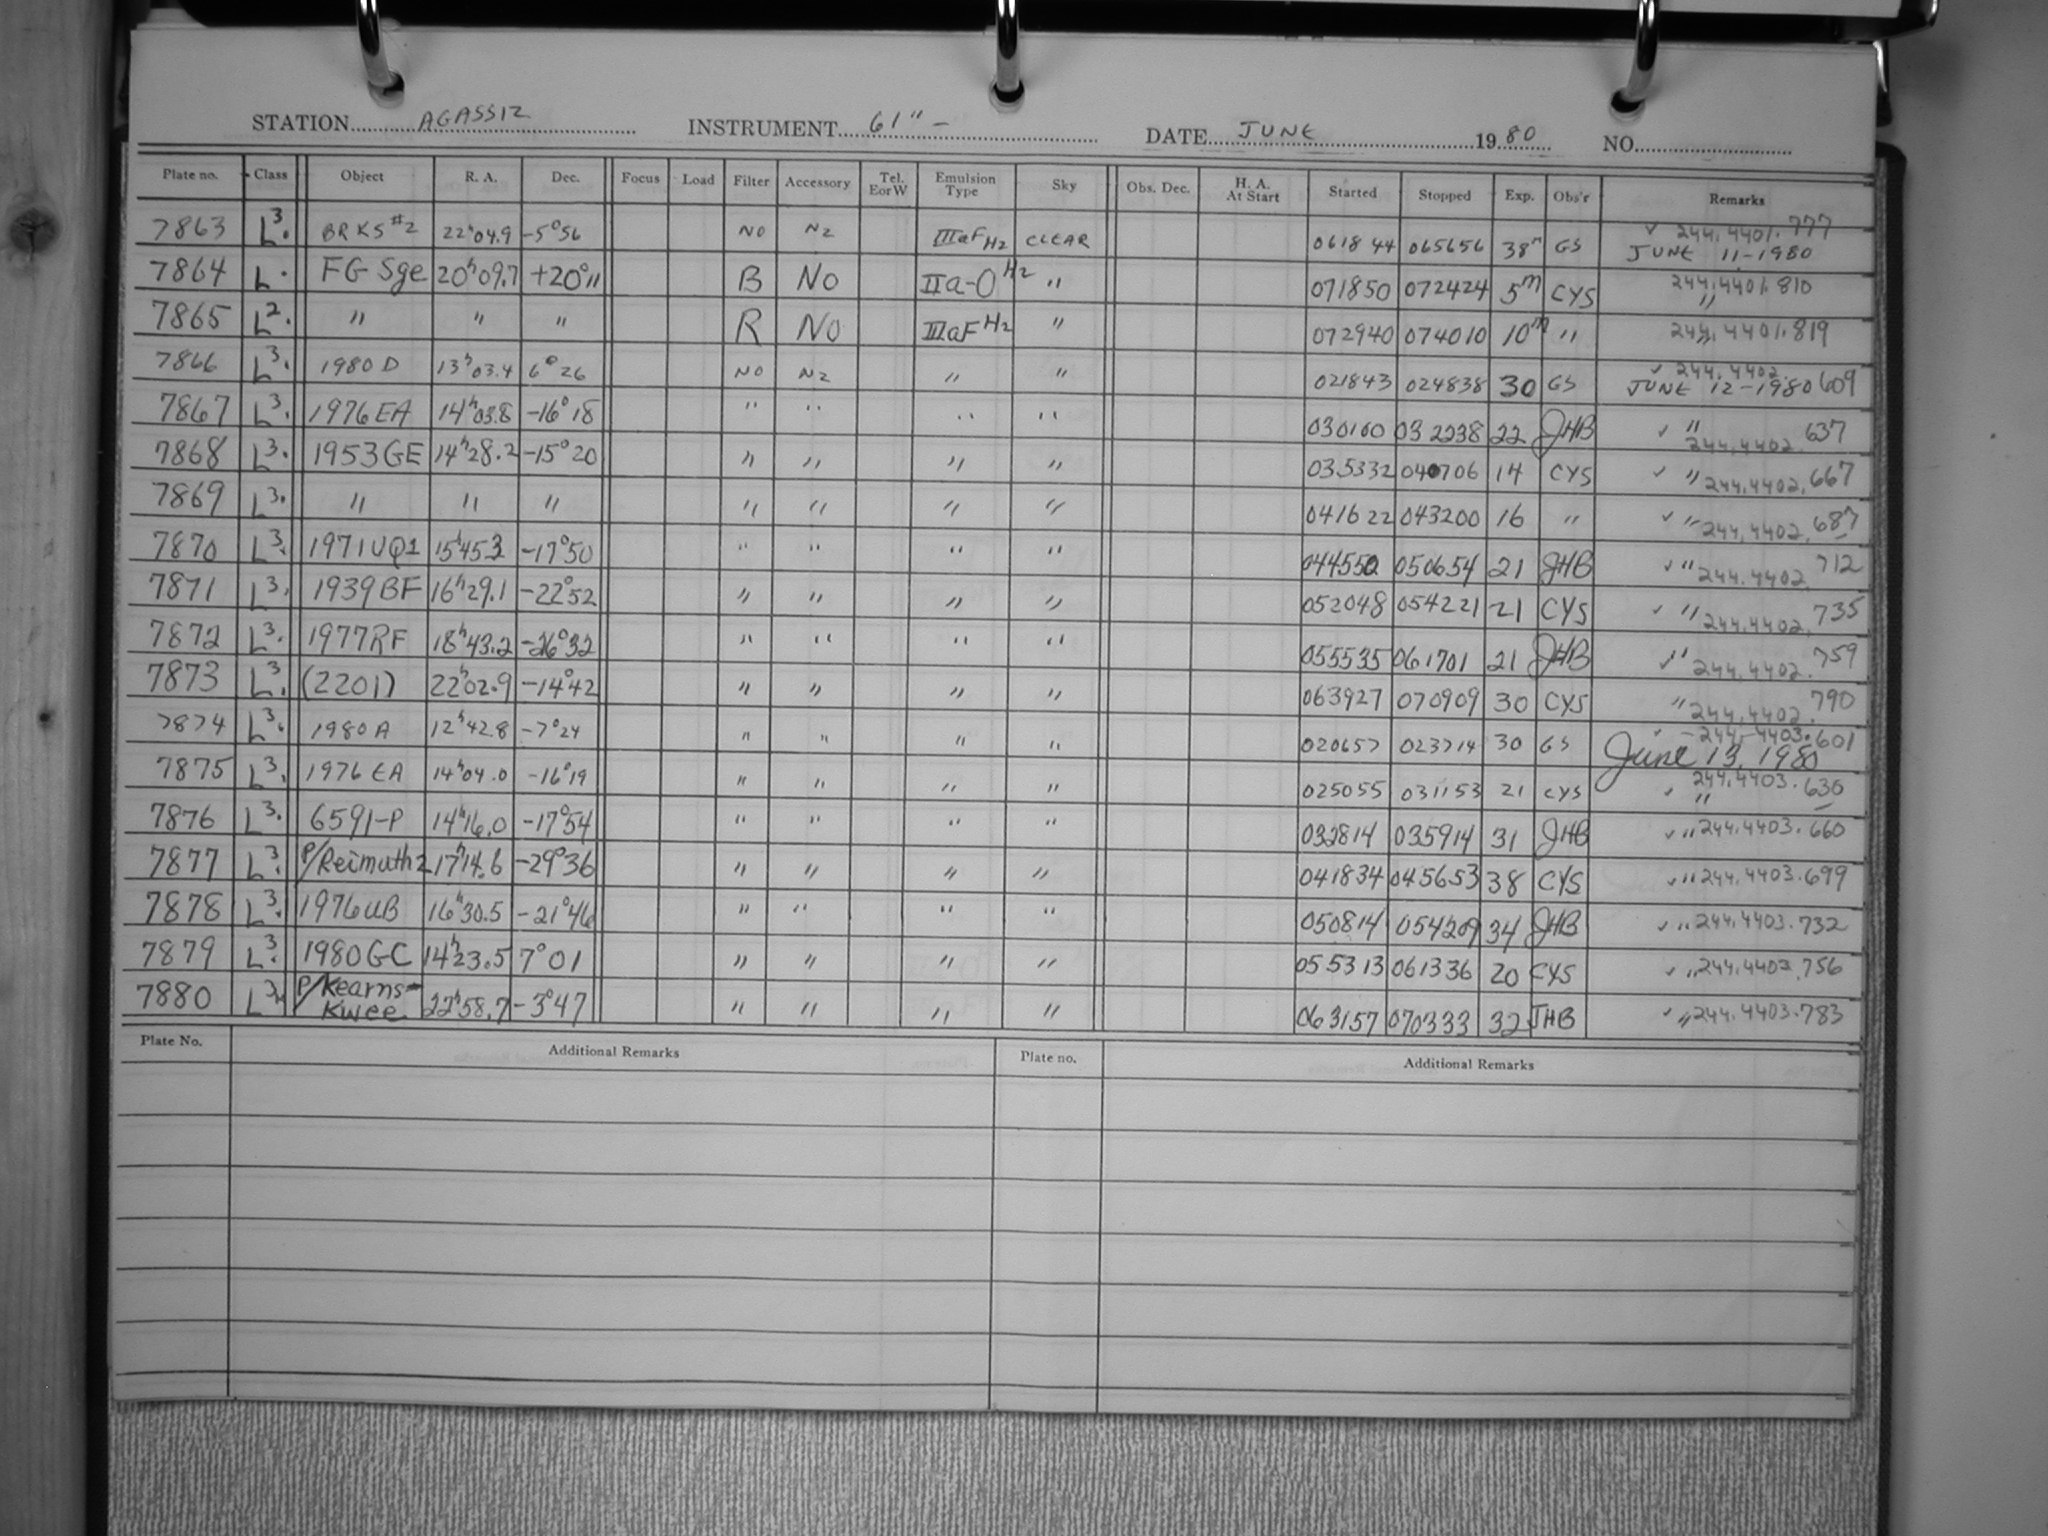 STATION AGASSIZ INSTRUMENT 61" - DATE JUNE 1980 NO.
Plate no. Class Object R. A. Dec. Focus Load Filter Accessory Tel. E or W Emulsion Type Sky Obs. Dec. H. A. At Start Started Stopped Exp. Obs'r Remarks
7863 L3. BRKS #2 22h04.9 -5°56 NO N2 IIIaF H2 CLEAR 061844 065656 38m GS ✓ 244.4401.777 JUNE 11-1980
7864 L. FG Sge 20h09.7 +20°11 B NO IIa-O H2 " 071850 072424 5m CYS 244.4401.810 "
7865 L2. " " " R NO IIIaF H2 " 072940 074010 10m " 244.4401.819 "
7866 L3. 1980 D 13h03.4 6°26 NO N2 " " 021843 024838 30 GS ✓ 244.4402.609 JUNE 12-1980
7867 L3. 1976 EA 14h03.8 -16°18 " " " " 030100 032238 22 JHB ✓ " 244.4402.637
7868 L3. 1953 GE 14h28.2 -15°20 " " " " 035332 040706 14 CYS ✓ " 244.4402.667
7869 L3. " " " " " " " 041622 043200 16 " ✓ " 244.4402.687
7870 L3. 1971 UQ1 15h45.3 -17°50 " " " " 044550 050654 21 JHB ✓ " 244.4402.712
7871 L3. 1939 BF 16h29.1 -22°52 " " " " 052048 054221 21 CYS ✓ " 244.4402.735
7872 L3. 1977 RF 18h43.2 -26°32 " " " " 055535 061701 21 JHB ✓ " 244.4402.759
7873 L3. (2201) 22h02.9 -14°42 " " " " 063927 070909 30 CYS " 244.4402.790
7874 L3. 1980 A 12h42.8 -7°24 " " " " 020657 023714 30 GS ✓ 244.4403.601 June 13, 1980
7875 L3. 1976 EA 14h04.0 -16°19 " " " " 025055 031153 21 CYS ✓ " 244.4403.630
7876 L3. 6591-P 14h16.0 -17°54 " " " " 032814 035914 31 JHB ✓ " 244.4403.660
7877 L3. P/Reimuth 2 17h14.6 -29°36 " " " " 041834 045653 38 CYS ✓ " 244.4403.699
7878 L3. 1976 UB 16h30.5 -21°46 " " " " 050814 054209 34 JHB ✓ " 244.4403.732
7879 L3. 1980 GC 14h23.5 7°01 " " " " 055313 061336 20 CYS ✓ " 244.4403.756
7880 L3 P/Kearns-Kwee 22h58.7 -3°47 " " " " 063157 070333 32 JHB ✓ " 244.4403.783
Plate No. Additional Remarks Plate no. Additional Remarks